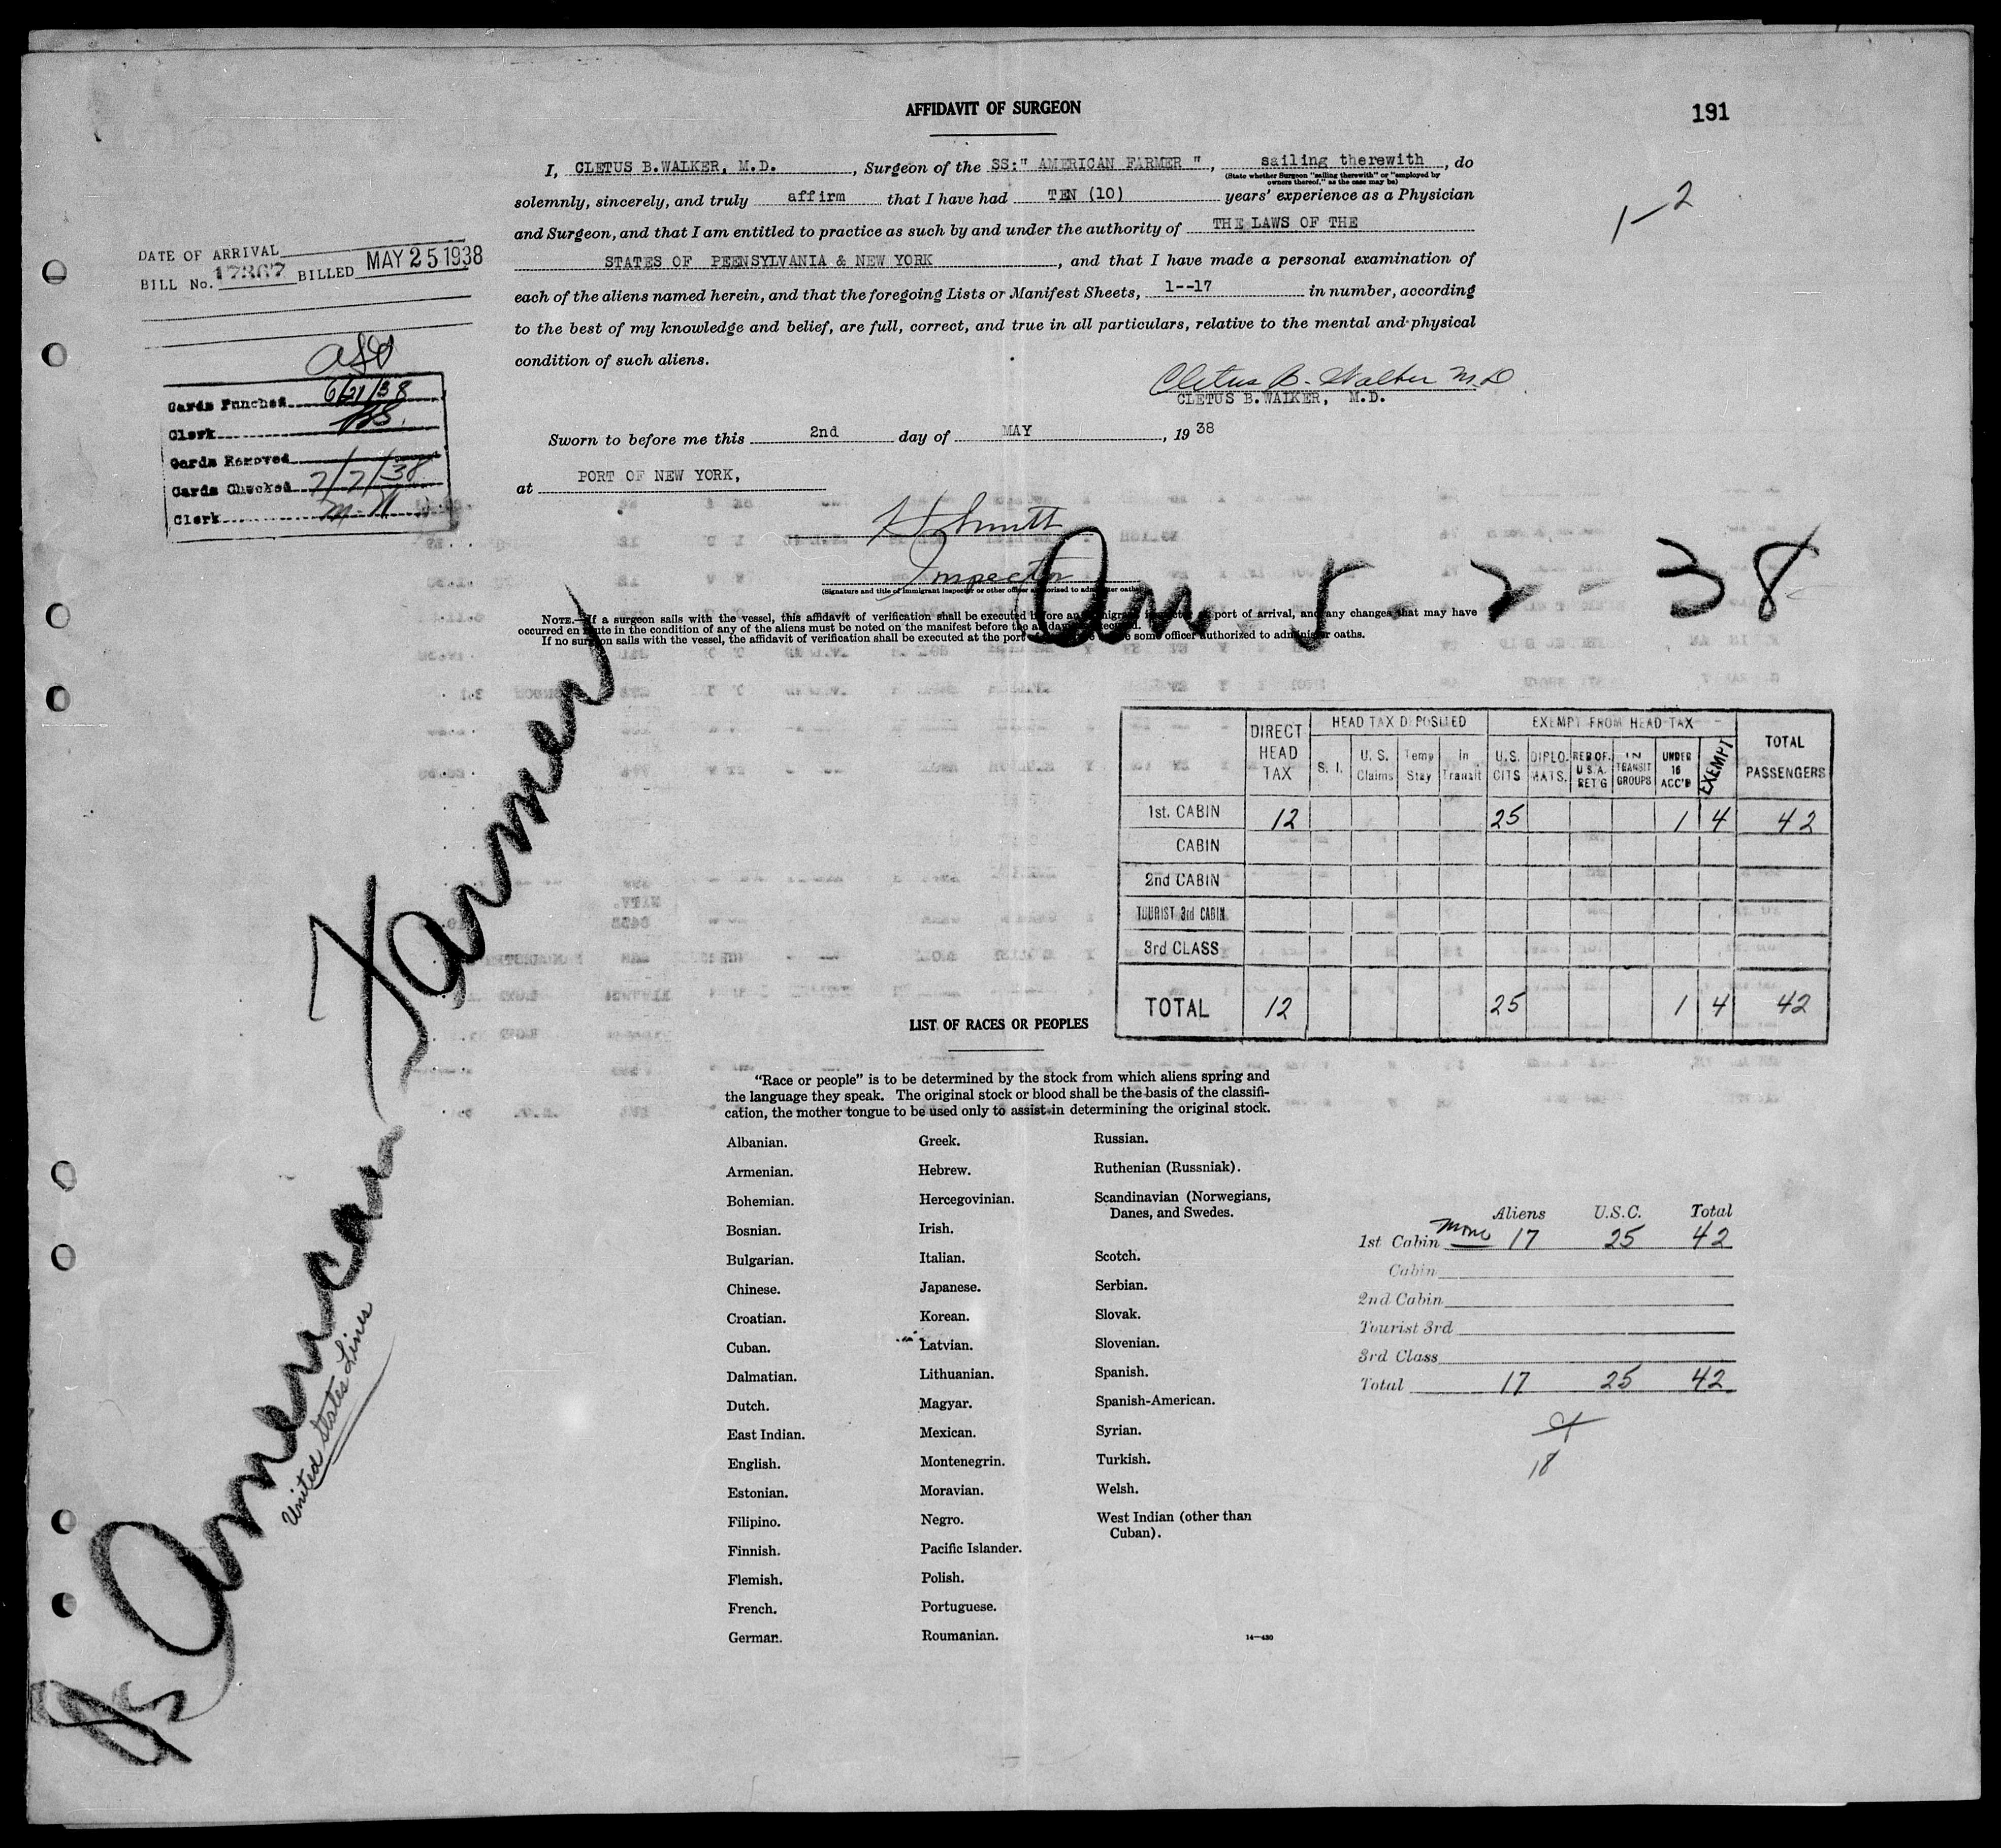 AFFIDAVIT OF SURGEON
191
I, CLETUS B.WALKER, M.D. , Surgeon of the SS:" AMERICAN FARMER ", sailing therewith , do
(State whether Surgeon "sailing therewith" or "employed by
owners thereof," as the case may be)
solemnly, sincerely, and truly affirm that I have had TEN (10) years' experience as a Physician
and Surgeon, and that I am entitled to practice as such by and under the authority of THE LAWS OF THE
STATES OF PEENSYLVANIA & NEW YORK , and that I have made a personal examination of
each of the aliens named herein, and that the foregoing Lists or Manifest Sheets, 1--17 in number, according
to the best of my knowledge and belief, are full, correct, and true in all particulars, relative to the mental and physical
condition of such aliens.
1-2
DATE OF ARRIVAL
BILL No. 17367 BILLED MAY 25 1938
Cards Punched 6/21/38
Clerk
Cards Removed
Cards Checked 7/7/38
Clerk M.
Cletus B. Walker M.D
CLETUS B.WALKER, M.D.
Sworn to before me this 2nd day of MAY , 19 38
at PORT OF NEW YORK,
Inspector
(Signature and title of Immigrant Inspector or other officer authorized to administer oaths)
NOTE.—If a surgeon sails with the vessel, this affidavit of verification shall be executed before an immigrant inspector at port of arrival, and any changes that may have
occurred en route in the condition of any of the aliens must be noted on the manifest before the affidavit is executed.
If no surgeon sails with the vessel, the affidavit of verification shall be executed at the port before some officer authorized to administer oaths.
5-2-38
DIRECT HEAD TAX
HEAD TAX DEPOSITED
EXEMPT FROM HEAD TAX
TOTAL PASSENGERS
S. I. U. S. Claims Temp Stay In Transit U.S. CITS DIPLO. MATS. RES OF. U S.A. RET'G IN TRANSIT GROUPS UNDER 16 ACC'D EXEMPT
1st. CABIN 12 25 1 4 42
CABIN
2nd CABIN
TOURIST 3rd CABIN
3rd CLASS
TOTAL 12 25 1 4 42
American Farmer
United States Lines
LIST OF RACES OR PEOPLES
"Race or people" is to be determined by the stock from which aliens spring and
the language they speak. The original stock or blood shall be the basis of the classifi-
cation, the mother tongue to be used only to assist in determining the original stock.
Albanian.
Armenian.
Bohemian.
Bosnian.
Bulgarian.
Chinese.
Croatian.
Cuban.
Dalmatian.
Dutch.
East Indian.
English.
Estonian.
Filipino.
Finnish.
Flemish.
French.
German.
Greek.
Hebrew.
Hercegovinian.
Irish.
Italian.
Japanese.
Korean.
Latvian.
Lithuanian.
Magyar.
Mexican.
Montenegrin.
Moravian.
Negro.
Pacific Islander.
Polish.
Portuguese.
Roumanian.
Russian.
Ruthenian (Russniak).
Scandinavian (Norwegians,
Danes, and Swedes.
Scotch.
Serbian.
Slovak.
Slovenian.
Spanish.
Spanish-American.
Syrian.
Turkish.
Welsh.
West Indian (other than
Cuban).
14—430
Aliens U.S.C. Total
1st Cabin 17 25 42
Cabin
2nd Cabin
Tourist 3rd
3rd Class
Total 17 25 42
18